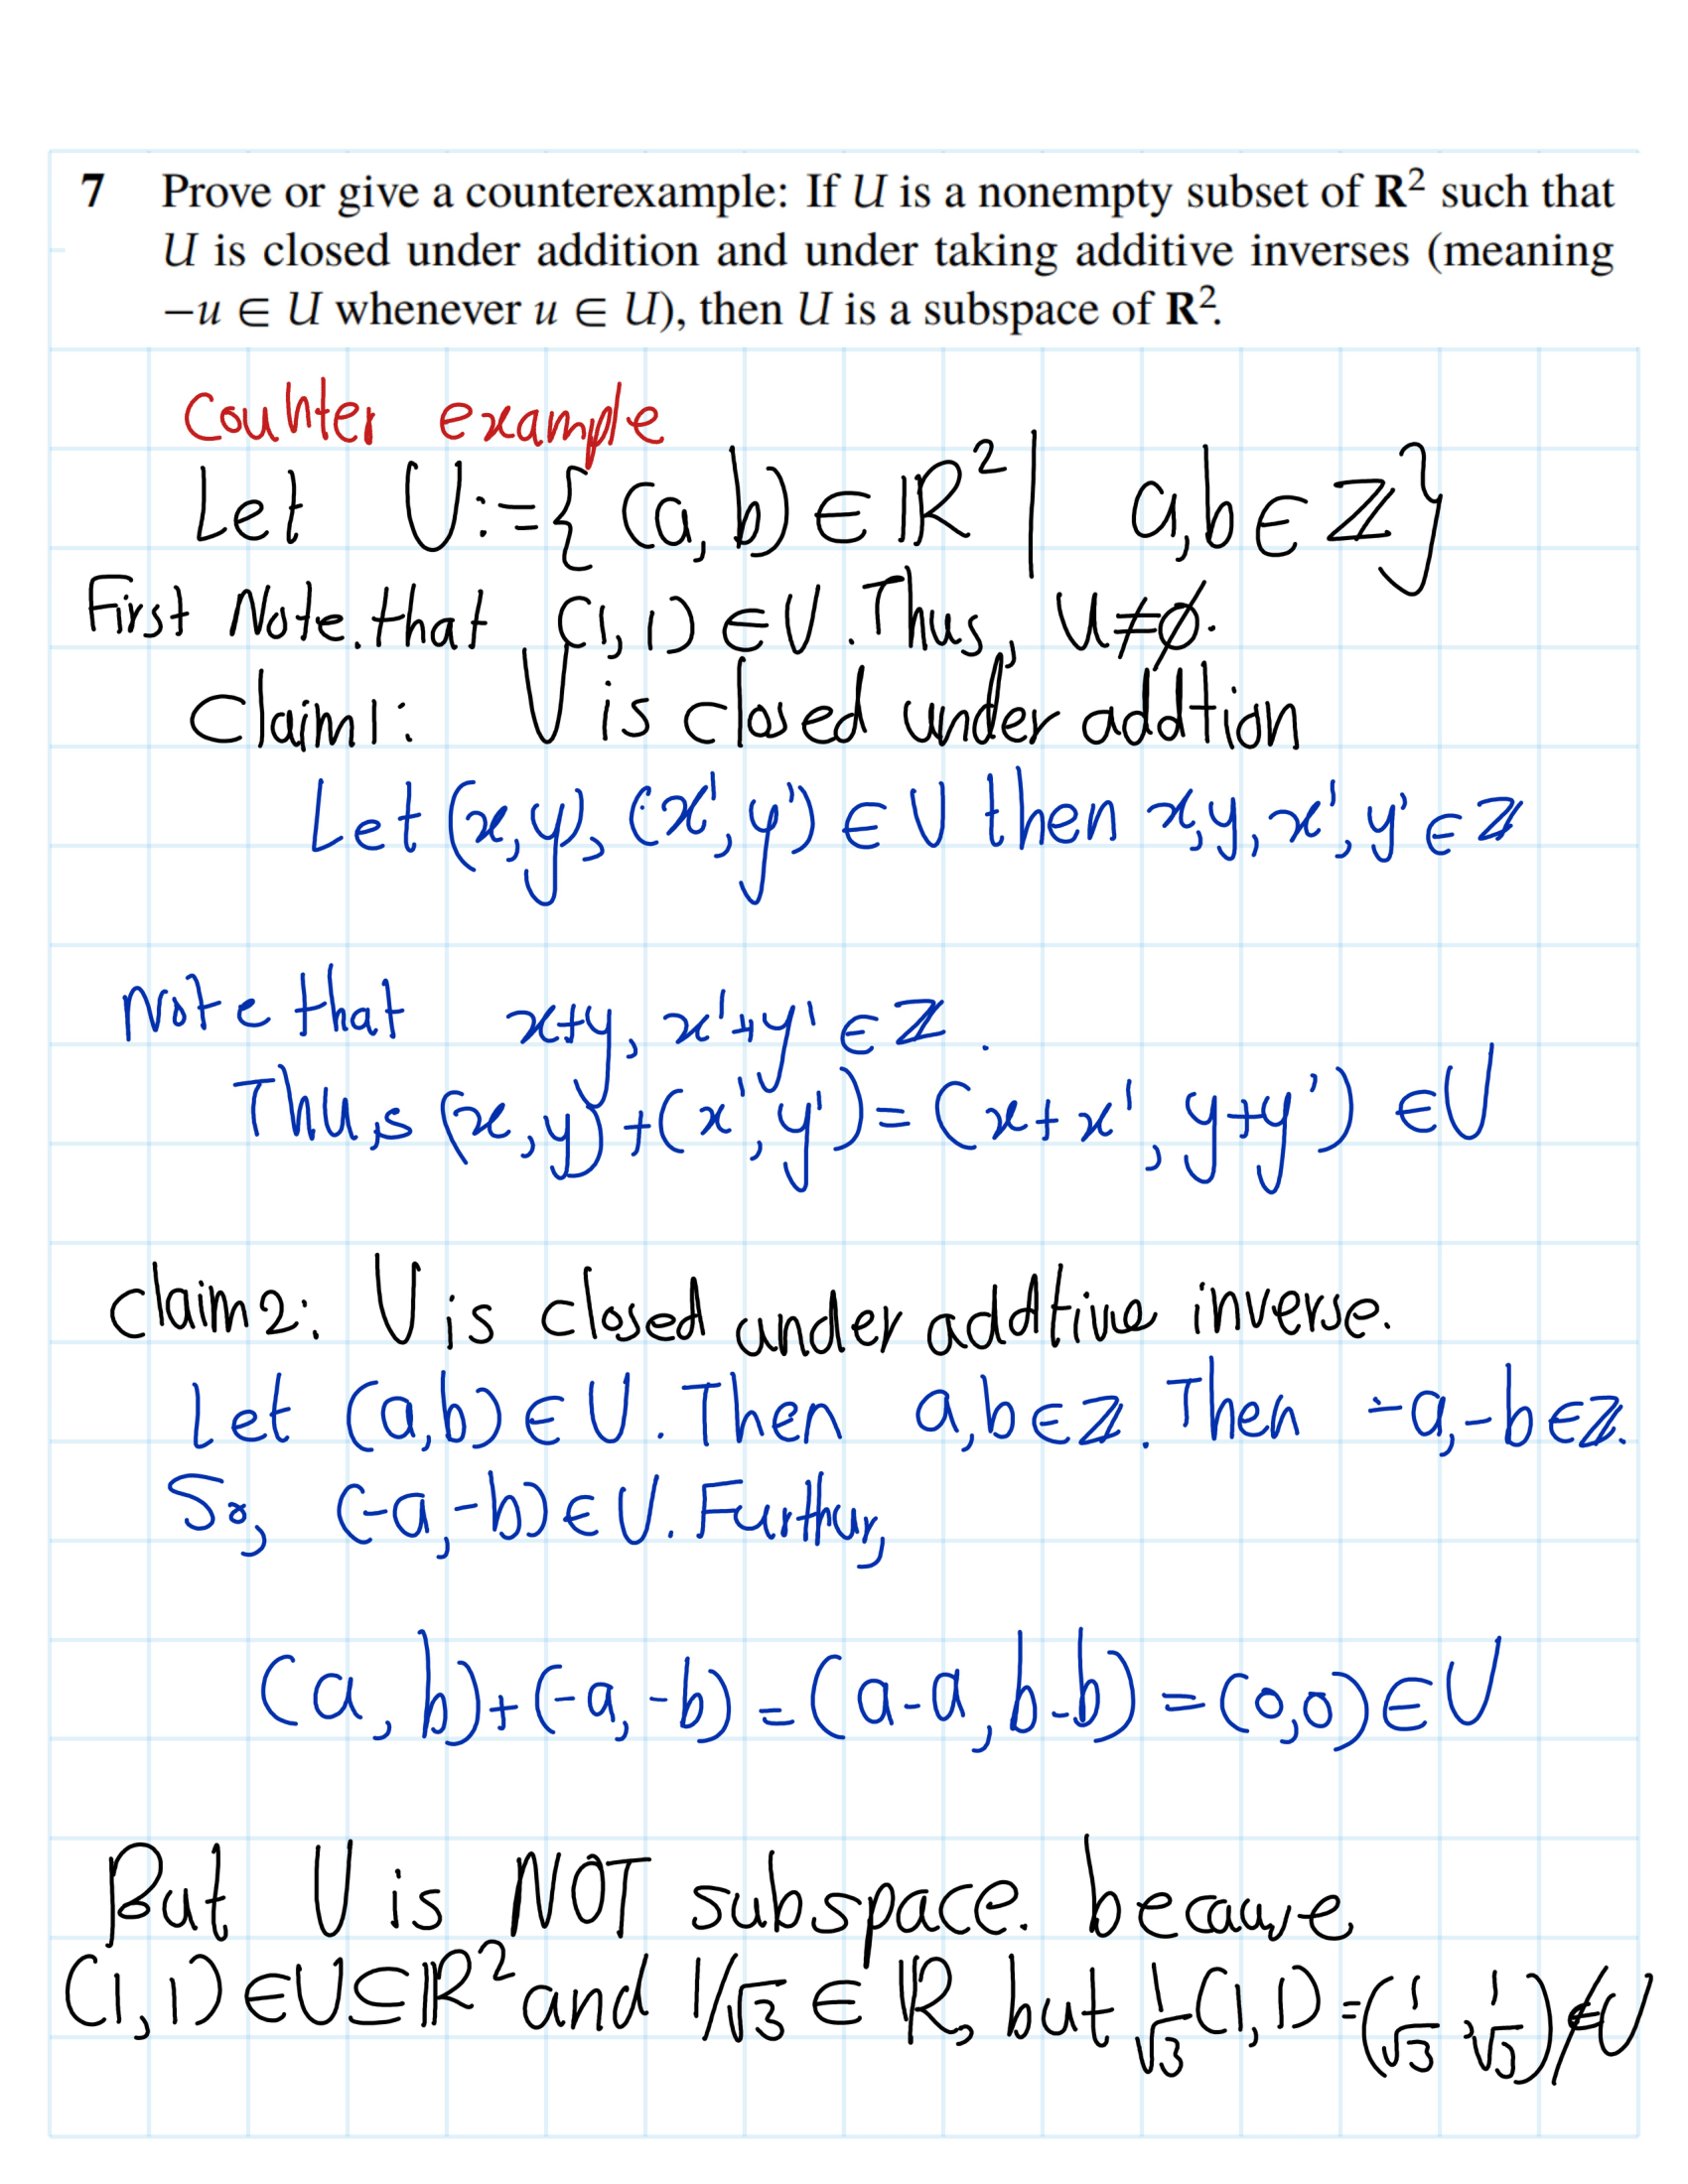 7 Prove or give a counterexample: If U is a nonempty subset of R² such that
U is closed under addition and under taking additive inverses (meaning
−u ∈ U whenever u ∈ U), then U is a subspace of R².
Counter example
Let U:={(a,b)∈ℝ²| a,b∈ℤ}
First Note.that (1,1)∈U. Thus, U≠∅.
Claim1: U is closed under addtion
Let (x,y), (x',y')∈U then x,y,x',y'∈ℤ
Note that x+y, x'+y'∈ℤ.
Thus (x,y)+(x',y')=(x+x',y+y')∈U
Claim2: U is closed under addtive inverse.
Let (a,b)∈U. Then a,b∈ℤ. Then -a,-b∈ℤ.
So, (-a,-b)∈U. Furthur,
(a,b)+(-a,-b)=(a-a,b-b)=(0,0)∈U
But U is NOT subspace. because
(1,1)∈U⊆ℝ² and 1/√3∈ℝ, but 1/√3(1,1)=(1/√3,1/√3)∉U